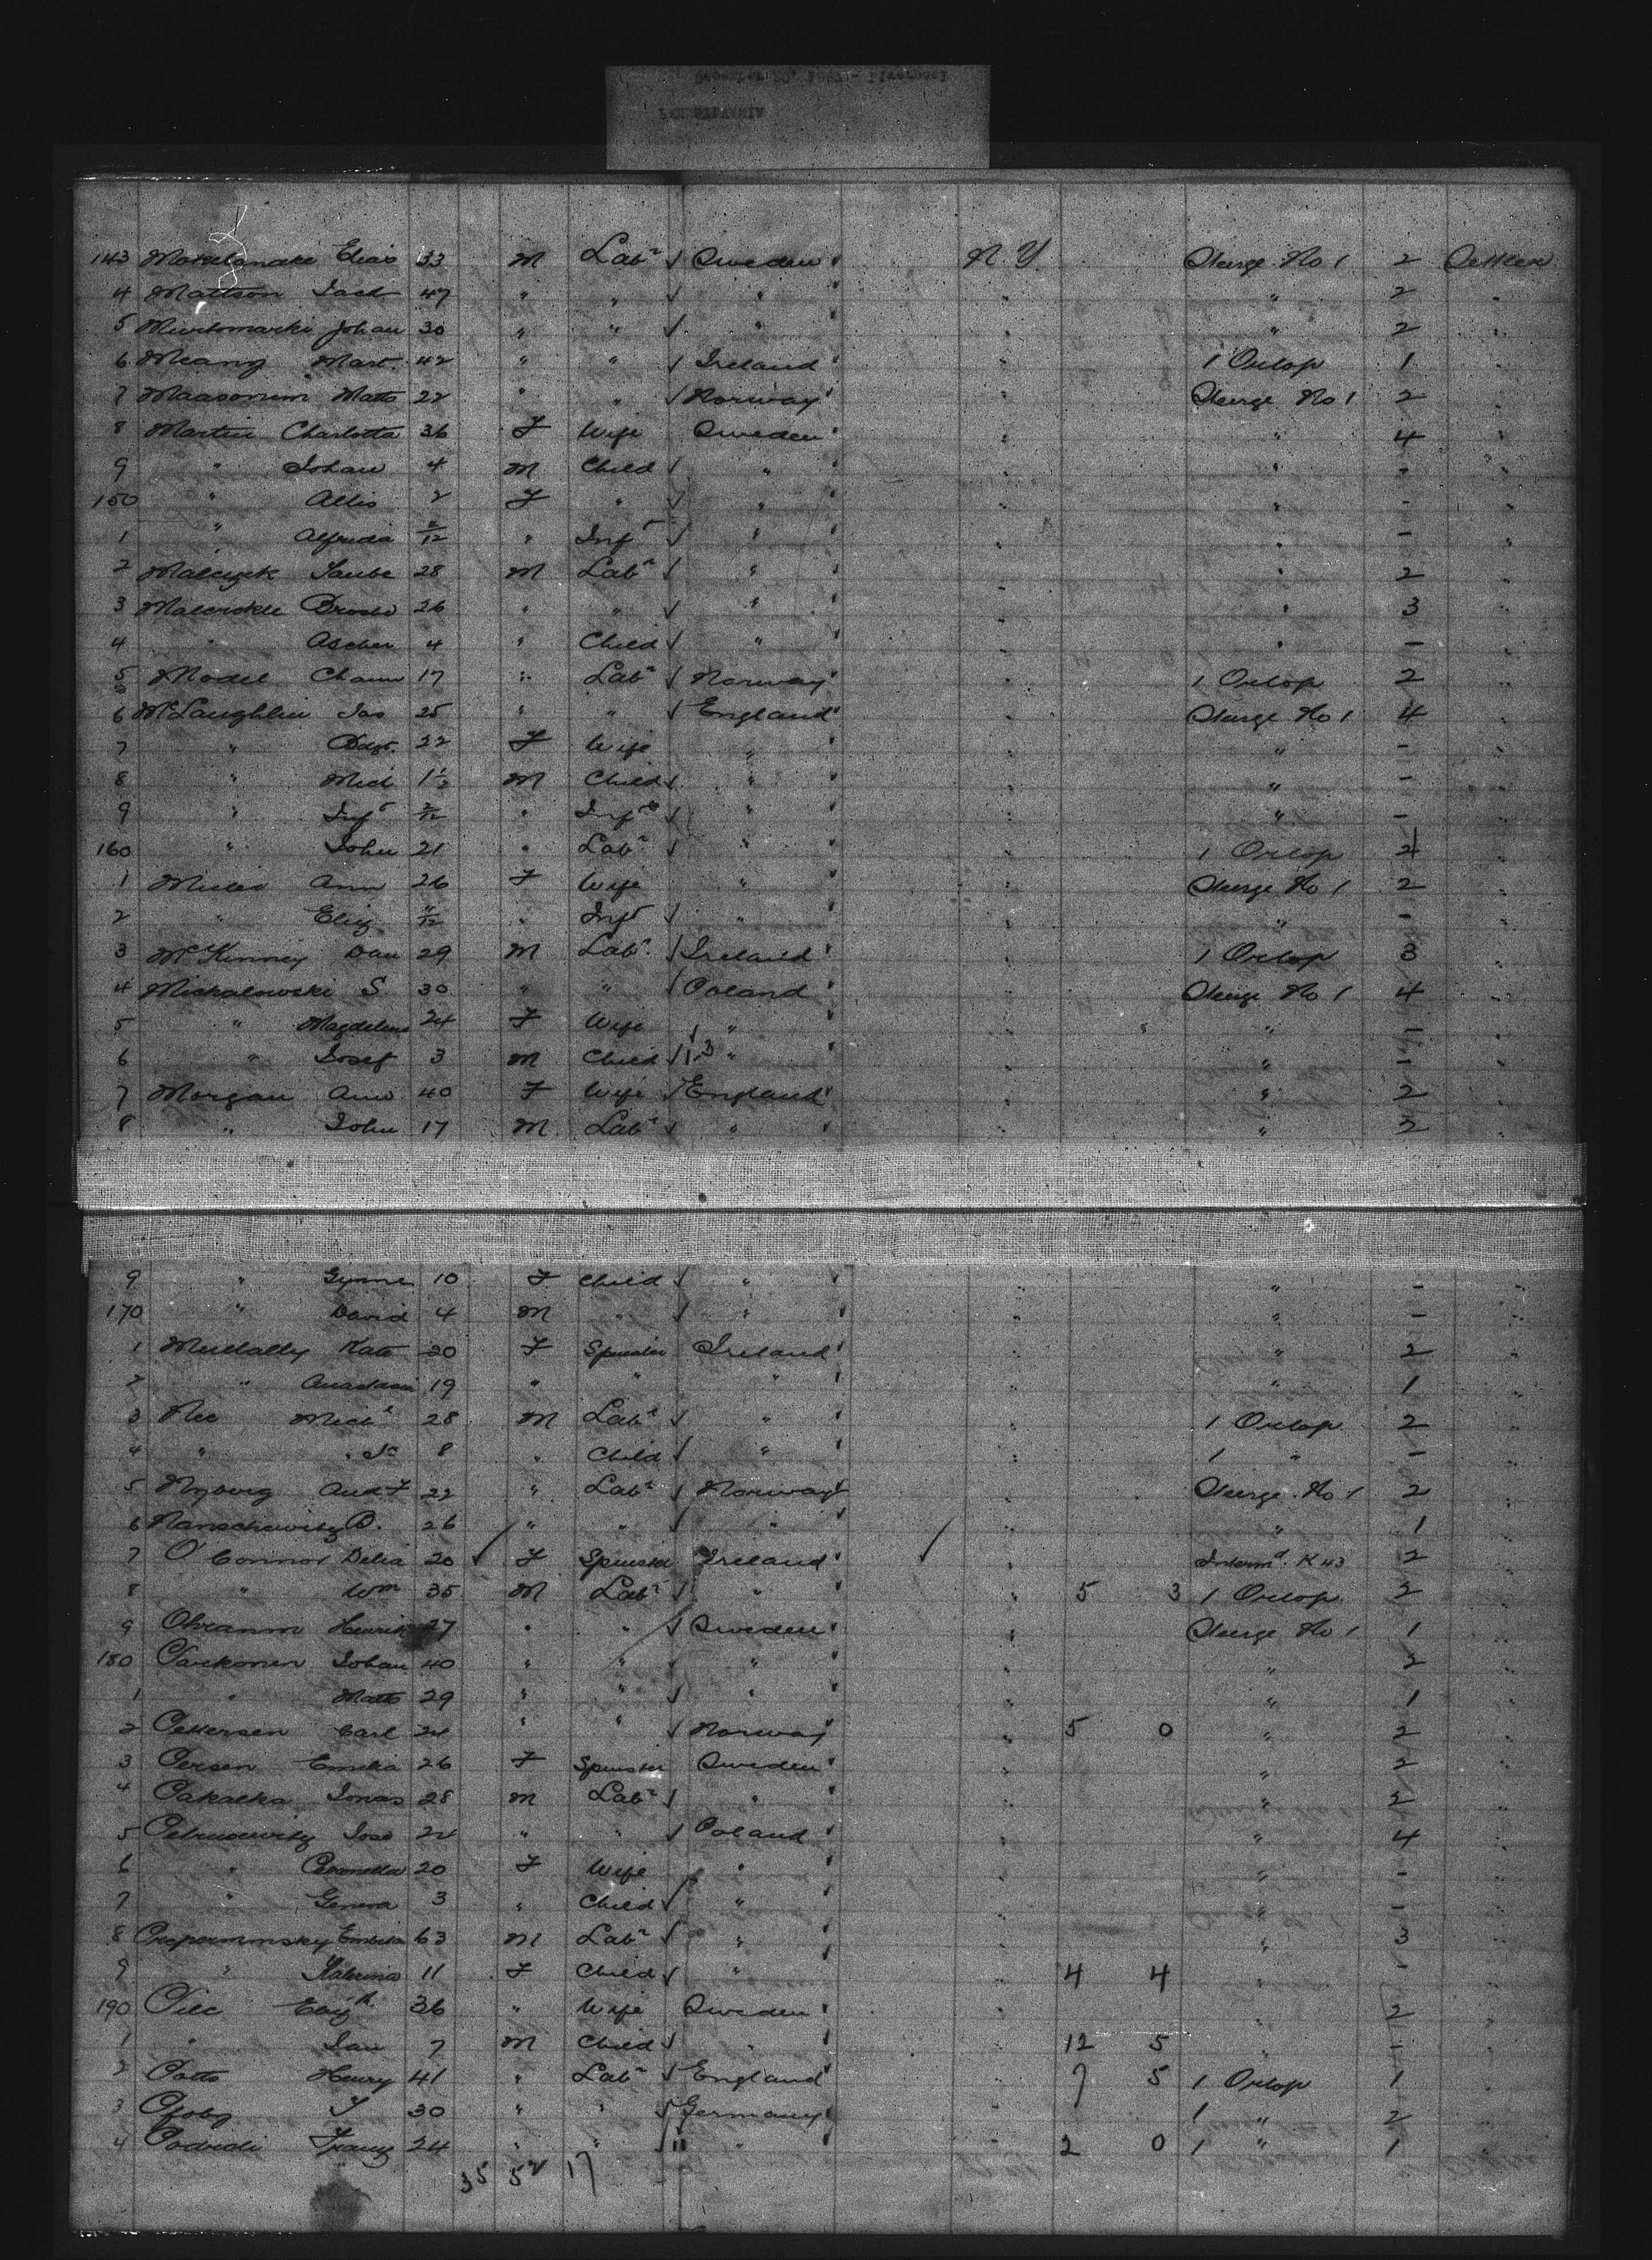 143 Elias 33 M Labr Sweden N Y Steerge No 1 2 Settler
4 Mattson Jack 47 " " " " " 2 "
5 Johan 30 " " " " " 2 "
6 Meany Mart. 42 " " Ireland " 1 Orlop 1 "
7 Matts 22 " " Norway " Steerge No 1 2 "
8 Martin Charlotta 36 F Wife Sweden " " 4 "
9 " Johan 4 M Child " " " - "
150 " 2 F " " " " -
1 " Alfrida " Inft " " " - "
2 28 M Labr " " " 2 "
3 26 " " " " " 3 "
4 " Ascher 4 " Child " " " - "
5 Model 17 " Labr Norway " 1 Orlop 2 "
6 McLaughlin Jas 25 " " England " Steerge No 1 4 "
7 " Bdgt. 22 F Wife " " " - "
8 " Mich 1½ M Child " " " - "
9 " Inft " Inft " " " - "
160 " John 21 " Labr " " 1 Orlop "
1 Ann 26 F Wife " " Steerge No 1 2 "
2 " Eliz 11/12 " Inft " " " - "
3 McKinney Dan 29 M Labr. Ireland " 1 Orlop 3 "
4 Michalowski S 30 " " Poland " Steerge No 1 4 "
5 " Magdelina 24 F Wife " " " - "
6 " Josef 3 M Child " " " - "
7 Morgan Ann 40 F Wife England " " 2 "
8 " John 17 M Labr " " " 2 "
9 " 10 F Child " " " - "
170 " David 4 M " " " " - "
1 Mullally Kate 20 F Spinster Ireland " " 2 "
2 " Anastasia 19 " " " " " 1 "
3 Nee Michl 28 M Labr " " 1 Orlop 2 "
4 " " Jr 8 " Child " " 1 " - "
5 Nyberg And F 22 " Labr Norway " Steerge No 1 2 "
6 B. 26 " " " " 1 "
7 O'Connor Delia 20 F Spinster Ireland " Intermd. K 43 2 "
8 " Wm 35 M Labr " " 5 3 1 Orlop 2 "
9 Henrik 27 " " Sweden " Steerge No 1 1 "
180 Parkonen Johan 40 " " " " " 2 "
1 " Matts 29 " " " " " 1 "
2 Pettersen Carl 24 " " Norway " 5 0 " 2 "
3 Persen Emilia 26 F Spinster Sweden " " 2 "
4 Pakalka Jonas 28 M Labr " " " 2 "
5 24 " " Poland " " 4 "
6 " Petronella 20 F Wife " " " - "
7 " Geneva 3 " Child " " " - "
8 63 M Labr " " " 3 "
9 " Katerina 11 F Child " " 4 4 " - "
190 Elizth 36 " Wife Sweden " " 2 "
1 " 7 M Child " " 12 5 " - "
2 Potts Henry 41 " Labr England " 7 5 1 Orlop 1 "
3 30 " " Germany " 1 " 2 "
4 Franz 24 " " " " 2 0 1 " 1 "
35 52 17